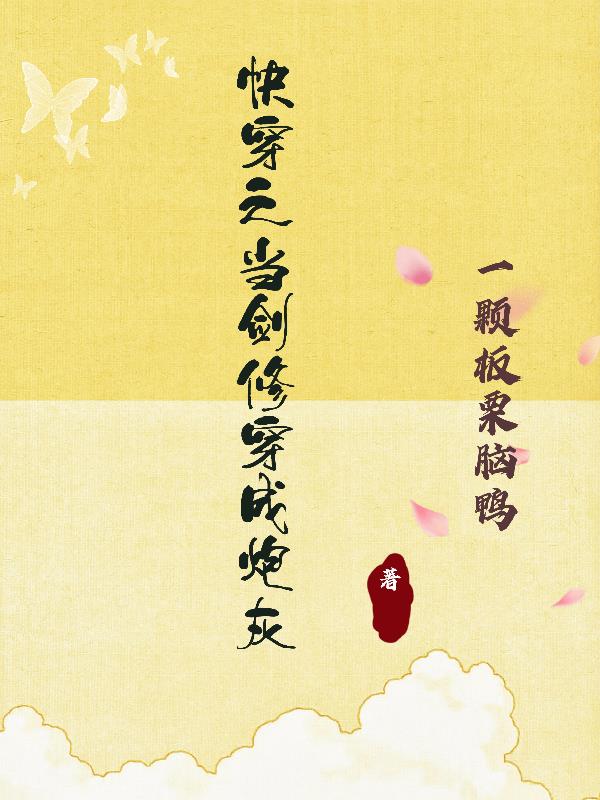 快穿之当剑修穿成炮灰
一颗板栗脑鸭
著